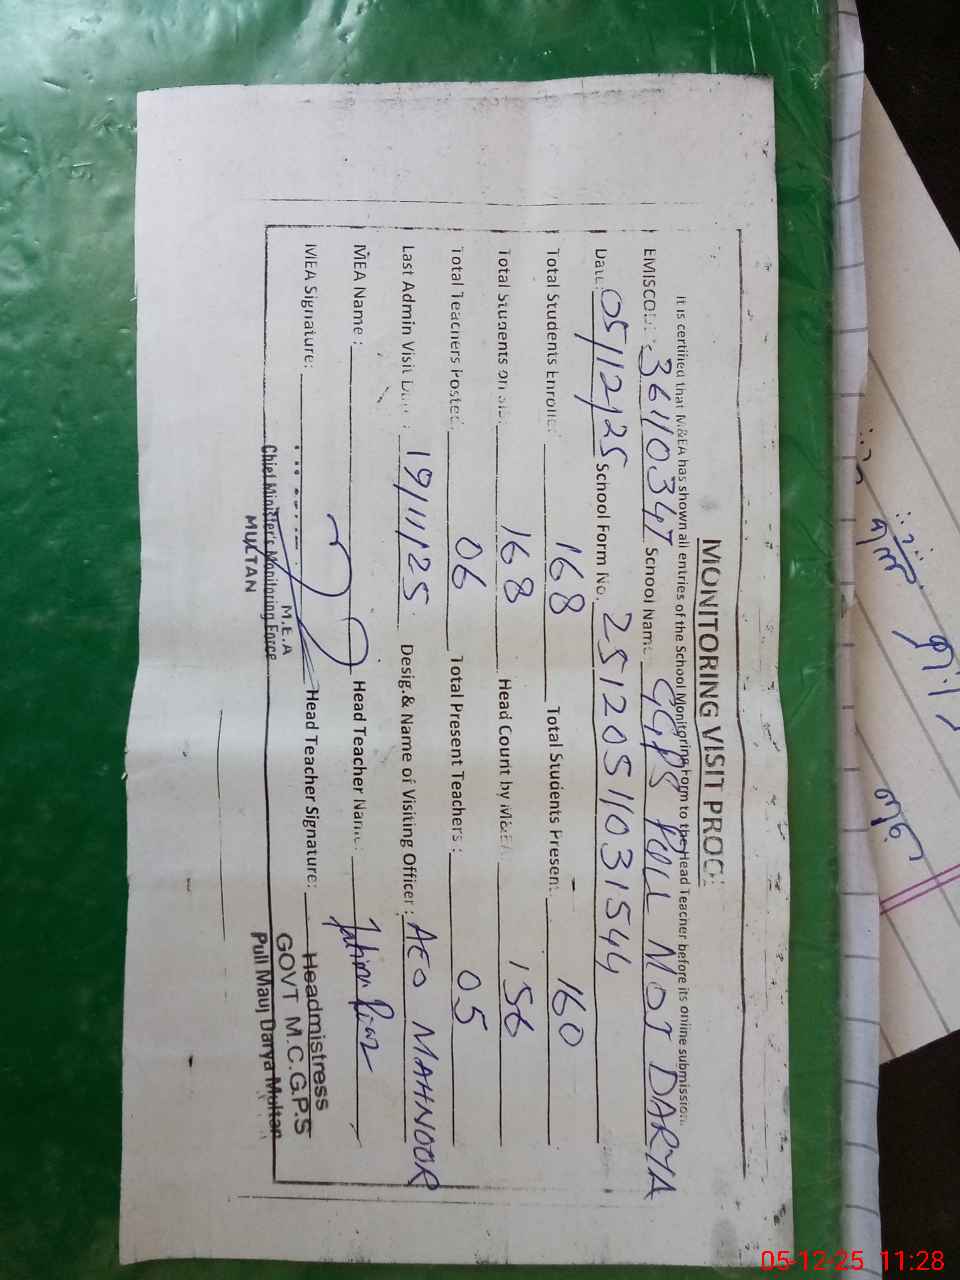 MONITORING VISIT PROOF
It is certified that M&EA has shown all entries of the School Monitoring Form to the Head Teacher before its online submission.
EMISCODE: 36110347 School Name GGPS PULL MOJ DARYA
Date: 05/12/25 School Form No. 25120511031544
Total Students Enrolled: 168 Total Students Present 160
Total Students on 168 Head Count by M&EA 156
Total Teachers Posted 06 Total Present Teachers: 05
Last Admin Visit Date 19/11/25 Desig.& Name of Visiting Officer: AEO MAHNOOR
MEA Name: Head Teacher Name:
MEA Signature: Head Teacher Signature:
M.E.A
Chief Minister's Monitoring Force
MULTAN
Headmistress
GOVT M.C.G.P.S
Pull Mauj Darya Multan
05-12-25 11:28